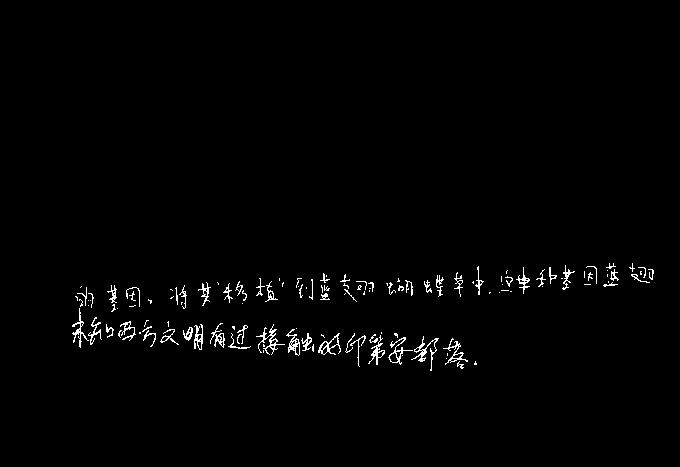 的基因。将其“移植”到蓝翅蝴蝶草中,这种基因蓝翅
未和西方文明有过接触的印第安部落.